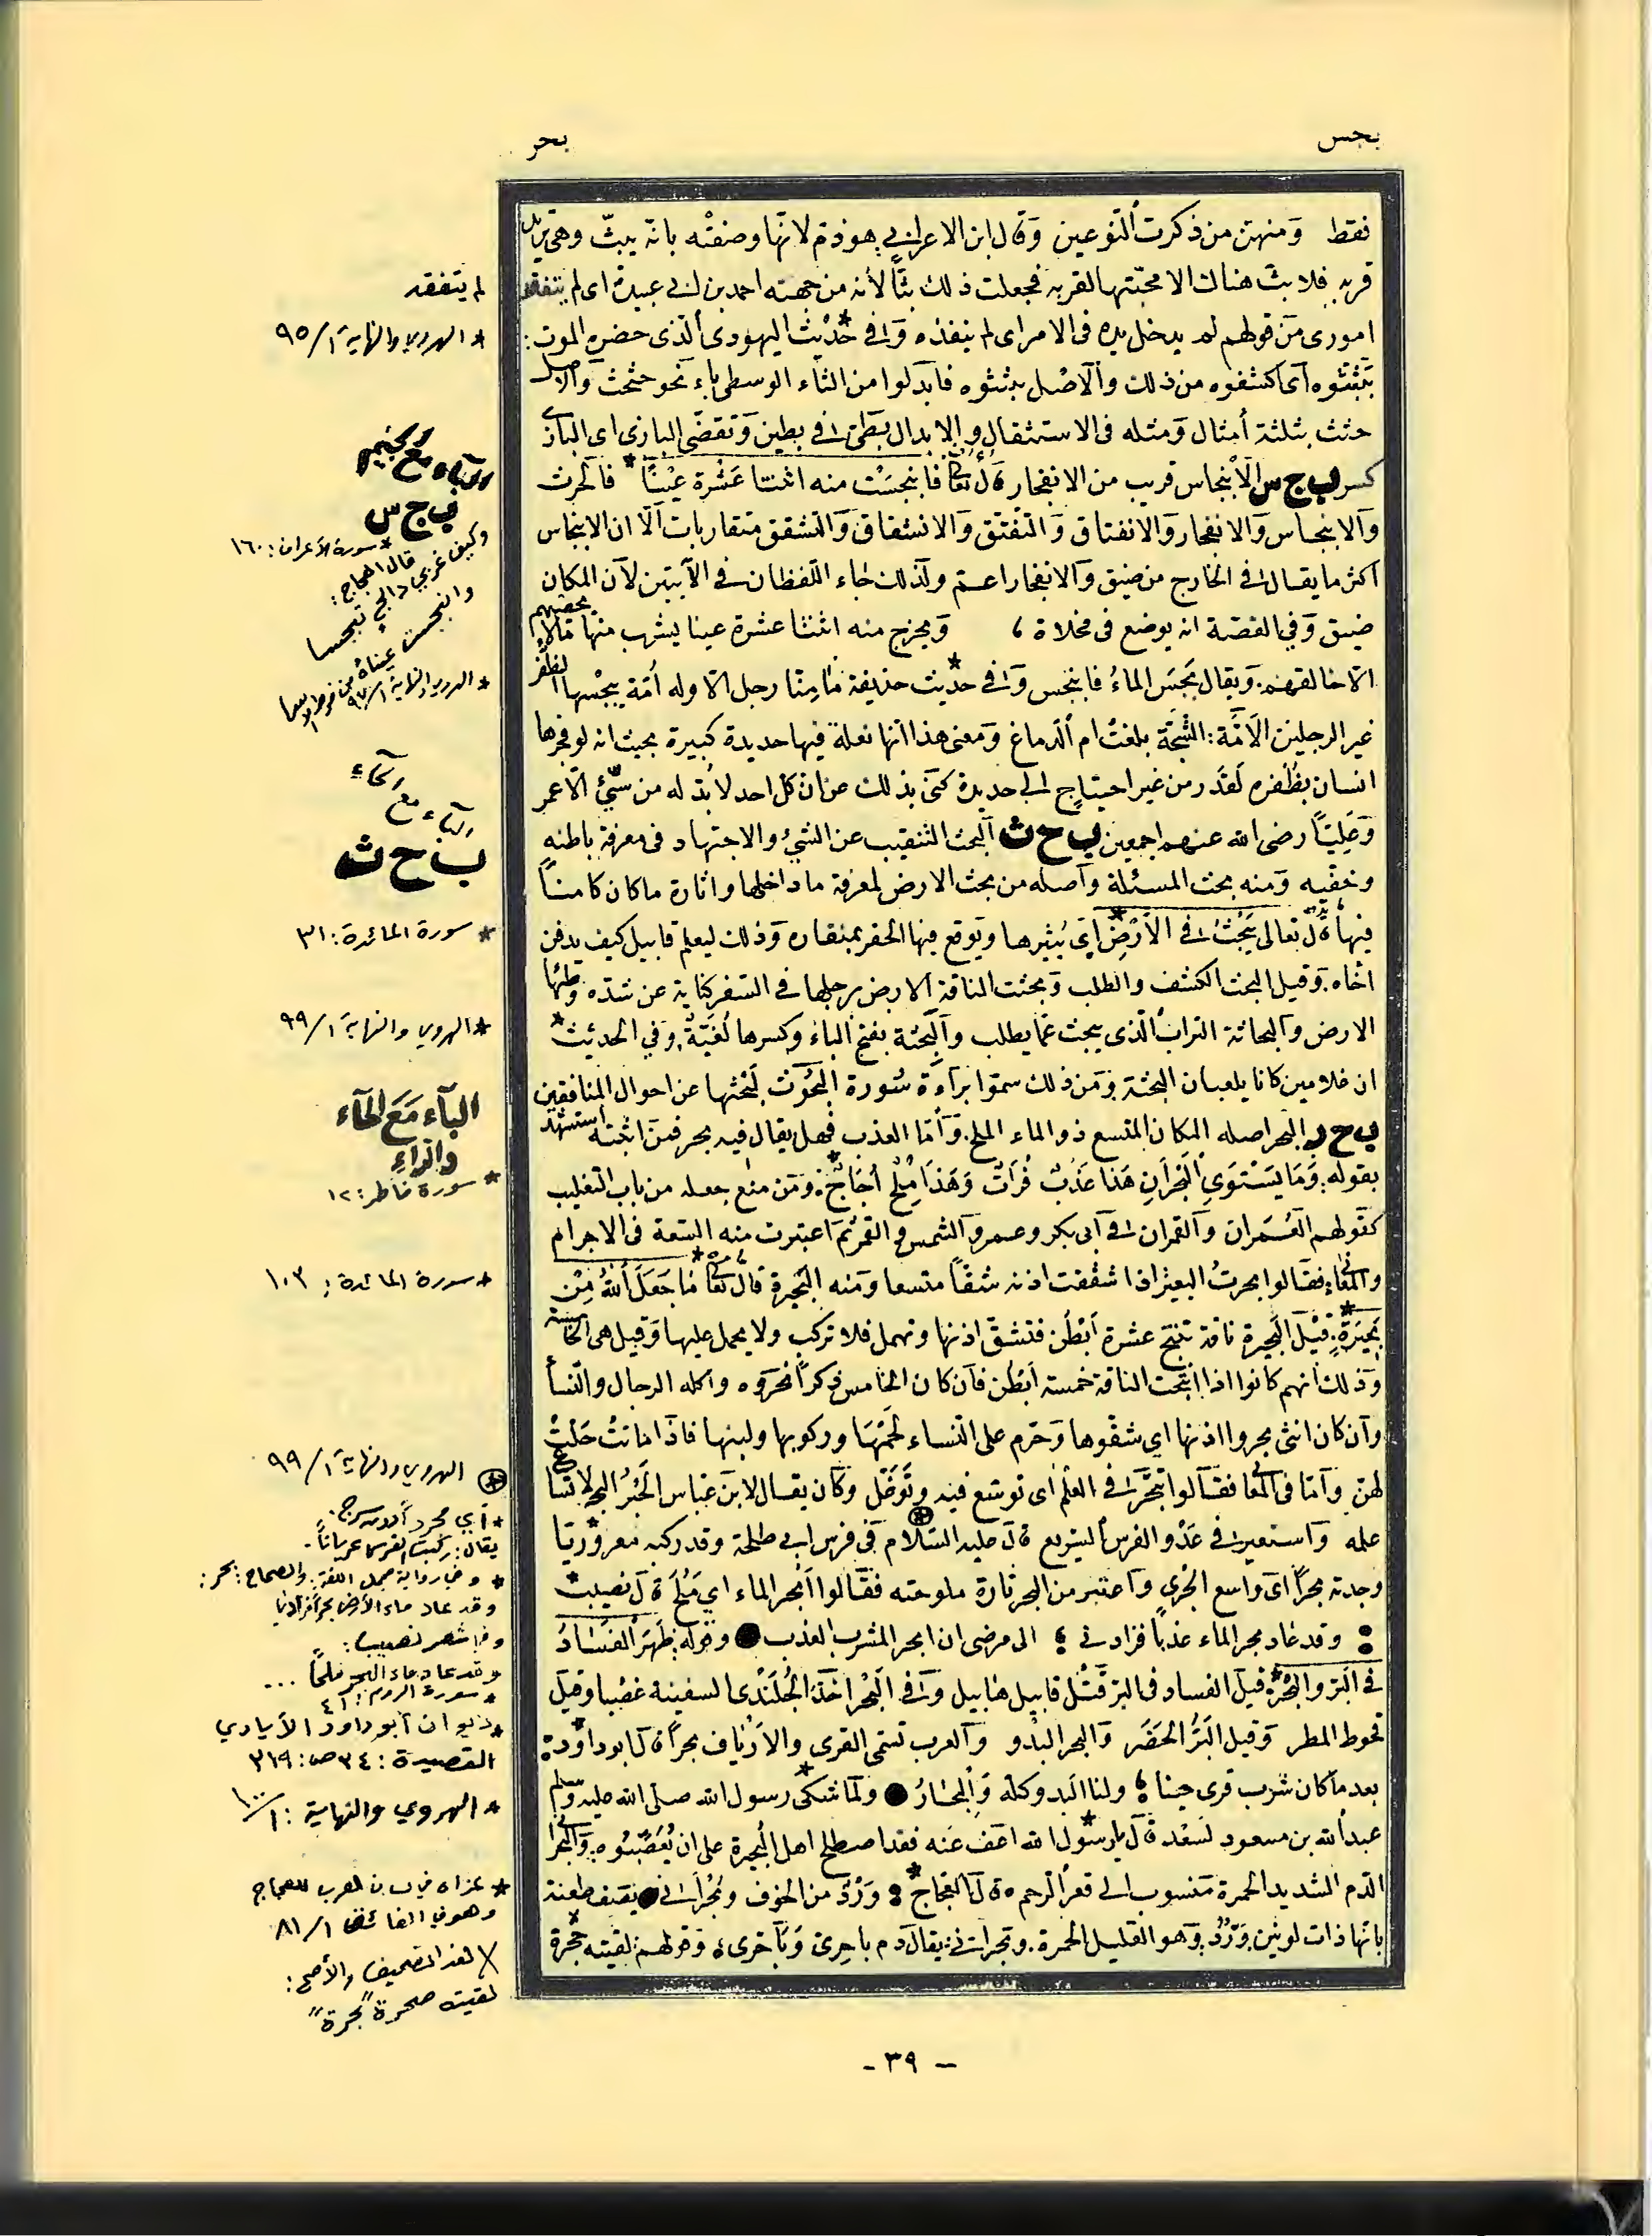 بجس
بحر
فقط ومنهن من ذكرت النوعين وقال ابن الاعرابي هو ذم لانها وصفته بانه يبث وهي تريد
قربه فلا بث هناك الا محبتها لقربه فجعلت ذلك بثا لأنه من جهته احمد بن ابي عبيدة اي لم يتفقد
اموري من قولهم لم يدخل يده في الامر اى لم يتفقده وفي حديث اليهودى الذى حضره الموت:
بثبثوه أى اكشفوه من ذلك والاصل بثثوه فابدلوا من الثاء الوسطى باء نحو حثحث والاصل
حثث بثلثة أمثال ومثله في الاستثقال والابدال تظنى في تظنن وتقضى البازى اى الباز
كسر ب ج س الانبجاس قريب من الانفجار قال تعالى فانبجست منه اثنتا عشرة عينا* فالخرت
والانبجاس والانفجار والانفتاق والتفتق والانشقاق والتشقق متقاربات الا ان الانبجاس
اكثر ما يقال في الخارج من ضيق والانفجار اعم ولذلك جاء اللفظان في الآيتين لان المكان
ضيق وفي القصة انه يوضع في مخلاة ، ويخرج منه اثنتا عشرة عينا يشرب منها
الا خالقهم. ويقال بجس الماء فانبجس وفي حديث حذيفة ما منا رجل الا وله أمة يبجسها الظفر
غير الرجلين الأمة: الشجة بلغت ام الدماغ ومعنى هذا انها نغلة فيها حديدة كبيرة بحيث انه لو فجرها
انسان بظفره لقدر من غير احتياج الى حديدة كنى بذلك عن ان كل احد لا بد له من شيئ الا عمر
وعليا رضى الله عنهم اجمعين ب ح ث البحث التنقيب عن الشيئ والاجتهاد في معرفة باطنه
وخفيه ومنه بحث المسئلة واصله من بحث الارض لمعرفة ما داخلها واثارة ما كان كامنا
فيها قال تعالى يبحث في الارض* اي يثيرها ويوقع فيها الحفر بمنقاره وذلك ليعلم قابيل كيف يدفن
اخاه. وقيل البحث الكشف والطلب وبحثت الناقة الارض برجلها في السفر كناية عن شدة وطئها
الارض والبحاثة التراب الذى يبحث عما يطلب والبحثة بفتح الباء وكسرها لعبة، وفي الحديث*
ان غلامين كانا يلعبان البحثة ومن ذلك سموا براءة سورة البحوث لبحثها عن احوال المنافقين
ب ح ر البحر اصله المكان المتسع ذو الماء الملح. وأما العذب فهل يقال فيه بحر فمن اثبته استشهد
بقوله: وما يستوي البحران هذا عذب فرات وهذا ملح أجاج*. ومن منع جعله من باب التغليب
كقولهم العمران والقمران في ابى بكر وعمر والشمس والقمر ثم اعتبرت منه السعة في الاجرام
والمعاني فقالوا بحرت البعير اذا شققت اذنه شقا متسعا ومنه البحيرة قال تعالى* ما جعل الله من
بحيرة*. قيل البحيرة ناقة تنتج عشرة أبطن فتشق اذنها وتهمل فلا تركب ولا يحمل عليها وقيل هي الخامسة
وذلك انهم كانوا اذا انتجت الناقة خمسة ابطن فان كان الخامس ذكرا نحروه واكله الرجال والنسأ
وان كان انثى بحروا اذنها اي شقوها وحرم على النساء لحمها وركوبها ولبنها فاذا ماتت حلت
لهن وأما في المعاني فقالوا تبحر في العلم اى توسع فيه وتوغل وكان يقال لابن عباس الحبر البحر لاتساع
علمه واستعير في عدو الفرس السريع قال عليه السلام في فرس ابي طلحة وقد ركبه معروريا
وجدته بحرا اى واسع الجري واعتبر من البحر تارة ملوحته فقالوا أبحر الماء اي ملح قال نصيب*
: وقد عاد بحر الماء عذبا فزادني ؛ الى مرضى ان ابحر المشرب العذب ● وقوله: ظهر الفساد
في البر والبحر*. قيل الفساد في البر قتل قابيل هابيل وفي البحر اخذ الجلندى السفينة غصبا وقيل
قحوط المطر وقيل البر الحضر والبحر البدو والعرب تسمى القرى والارياف بحرا قال ابو داود*:
بعد ما كان شرب قرى حينا ؛ ولنا البدو كله والبحار ● ولما شكى* رسول الله صلى الله عليه وسلم
عبدالله بن مسعود لسعد قال يا رسول الله اعف عنه فقد اصطلح اهل البحيرة على ان يعصبوه: والبحراني
الدم الشديد الحمرة منسوب الى قعر الرحم قال العجاج*: ورد من الجوف وبحراني ● يصف طعنة
بانها ذات لونين ورد وهو القليل الحمرة. وبحراني: يقال دم باحرى وبأخرى، وقولهم: لقيته حجرة
لم يتفقد
* الهروي والنهاية ١/ ٩٥
الباء مع الجيم
ب ج س
* سورة الأعراف: ١٦٠
قال العجاج:
وكيف غربي دالج تبجسا
وانحلبت عيناه من فرط الأسى
* الهروي والنهاية ١/ ٩٧
الباء مع الحاء
ب ح ث
* سورة المائدة: ٣١
* الهروي والنهاية ١/ ٩٩
الباء مع الحاء
والراء
* سورة فاطر: ١٢
* سورة المائدة: ١٠٣
الهروي والنهاية ١/ ٩٩
* أي مجرد أو دون سرج.
يقال: ركبت الفرس عريانا.
* وفي رواية مجمل اللغة، والصحاح: بحر:
وقد عاد ماء الأرض بحرا فزادنا
وفي شعر نصيب:
وقد عاد ماء البحر ملحا ...
* سورة الروم: ٤١
* ديوان أبو داود الأيادي
القصيدة: ٣٤ ص: ٣١٩
* الهروي والنهاية: ١/ ١٠٠
* عزاه في لسان العرب للعجاج
وهو في الفائق ١/ ٨١
X لعله التصحيف والأصح:
لقيته صحرة "بحرة"
- ٣٩ -